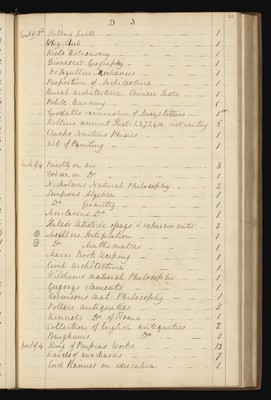 D J
41
Contd of 3d Kellins Tracts — 1
Whig Club — 1
Keils Astronomy — 1
Dionesius Geography — 1
Desagulliers Mechanics — 1
Proportion of Architecture — 1
Rural architecture Chinese Taste — 1
Polite learning — 1
Goodalls examination of Marys letters — 1
Rollins ancient Hist. 5
Clarks Newtons Phisics — 1
art of Painting — 1
Contd of 4 Priestly on air — 3
Dobson on Do — 1
Nicholsons Natural Philosophy — 2
Simpsons Algebra — 1
Do Geometry — 1
Maclaurins Do — 1
Hales Staticle essays & experiments 3
Mullers Fortification — 1
Do Mathematics — 1
Mairs Book keeping — 1
Civil architecture — 1
Helshams natural Philosophy — 1
Gregorys elements — 1
Robinsons Nat. Philosophy — 1
Potters antiquities — 2
Kennets Do of Rome — 1
Collection of English antiquities — 2
Binghams Do — 2
Contd of 4 King of Prussias works — 13
Lavels of machasons — 7
Lord Kaimes on education — 1